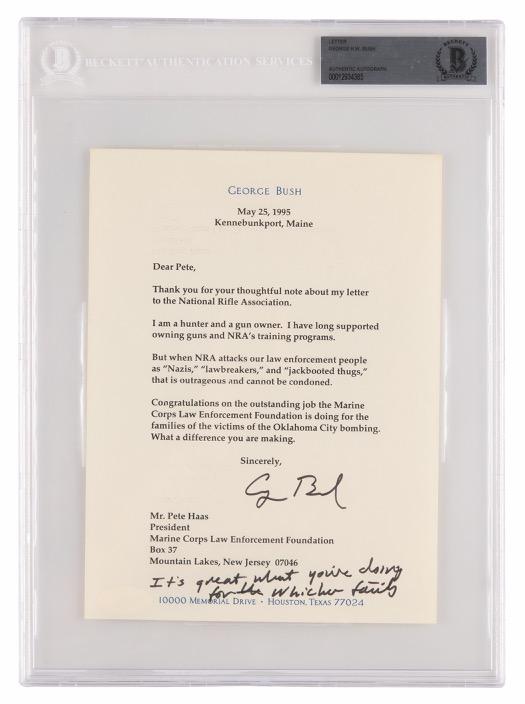 BECKETT AUTHENTICATION SERVICES
LETTER
GEORGE H.W. BUSH
AUTHENTIC AUTOGRAPH
00012934385
BECKETT
B
GEORGE BUSH
May 25, 1995
Kennebunkport, Maine
Dear Pete,
Thank you for your thoughtful note about my letter
to the National Rifle Association.
I am a hunter and a gun owner. I have long supported
owning guns and NRA's training programs.
But when NRA attacks our law enforcement people
as "Nazis," "lawbreakers," and "jackbooted thugs,"
that is outrageous and cannot be condoned.
Congratulations on the outstanding job the Marine
Corps Law Enforcement Foundation is doing for the
families of the victims of the Oklahoma City bombing.
What a difference you are making.
Sincerely,
G Bush
Mr. Pete Haas
President
Marine Corps Law Enforcement Foundation
Box 37
Mountain Lakes, New Jersey 07046
It's great what you're doing
for the Whicher family
10000 MEMORIAL DRIVE • HOUSTON, TEXAS 77024